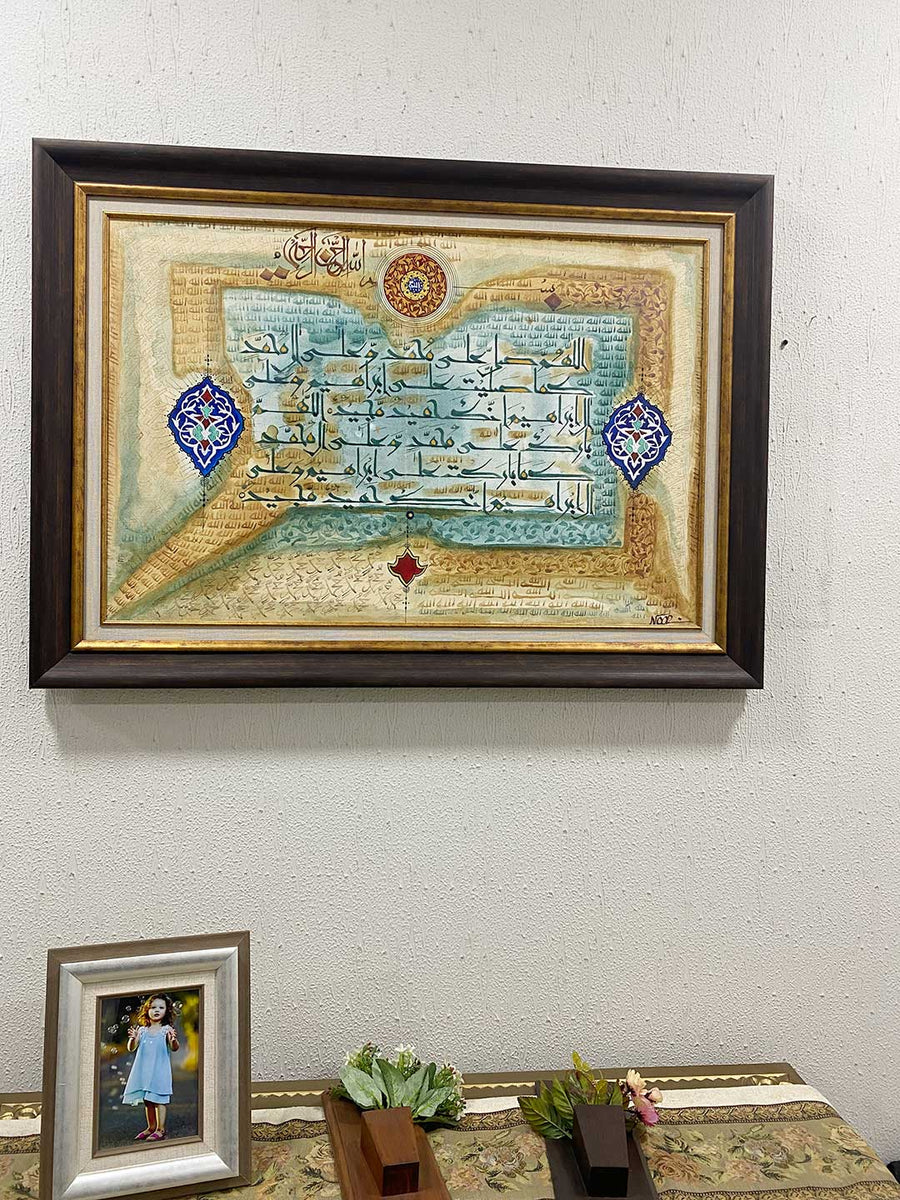 بسم الله الرحمن الرحيم
اللّهمّ صل على مُحمّد وّعلى اٰل محمّد
كما صلّيت على ابراهيم وعلى
اٰل ابراهيم انّك حميد مّجيد اللّهمّ
بارك على محمّد وّعلى اٰل محمّد
كما باركت على ابراهيم وعلى
اٰل ابراهيم انّك حميد مّجيد
NOOR